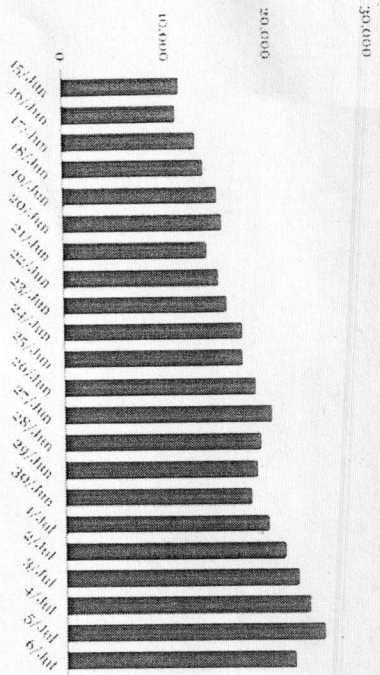 30.000
20.000
10.000
0
15/Jun
16/Jun
17/Jun
18/Jun
19/Jun
20/Jun
21/Jun
22/Jun
23/Jun
24/Jun
25/Jun
26/Jun
27/Jun
28/Jun
29/Jun
30/Jun
1/Jul
2/Jul
3/Jul
4/Jul
5/Jul
6/Jul